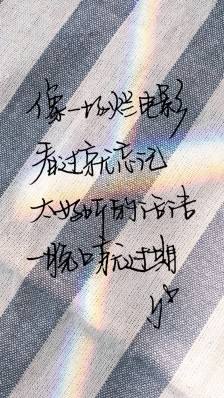 像一场烂电影
看过就忘记
太好听的话
一晚就过期